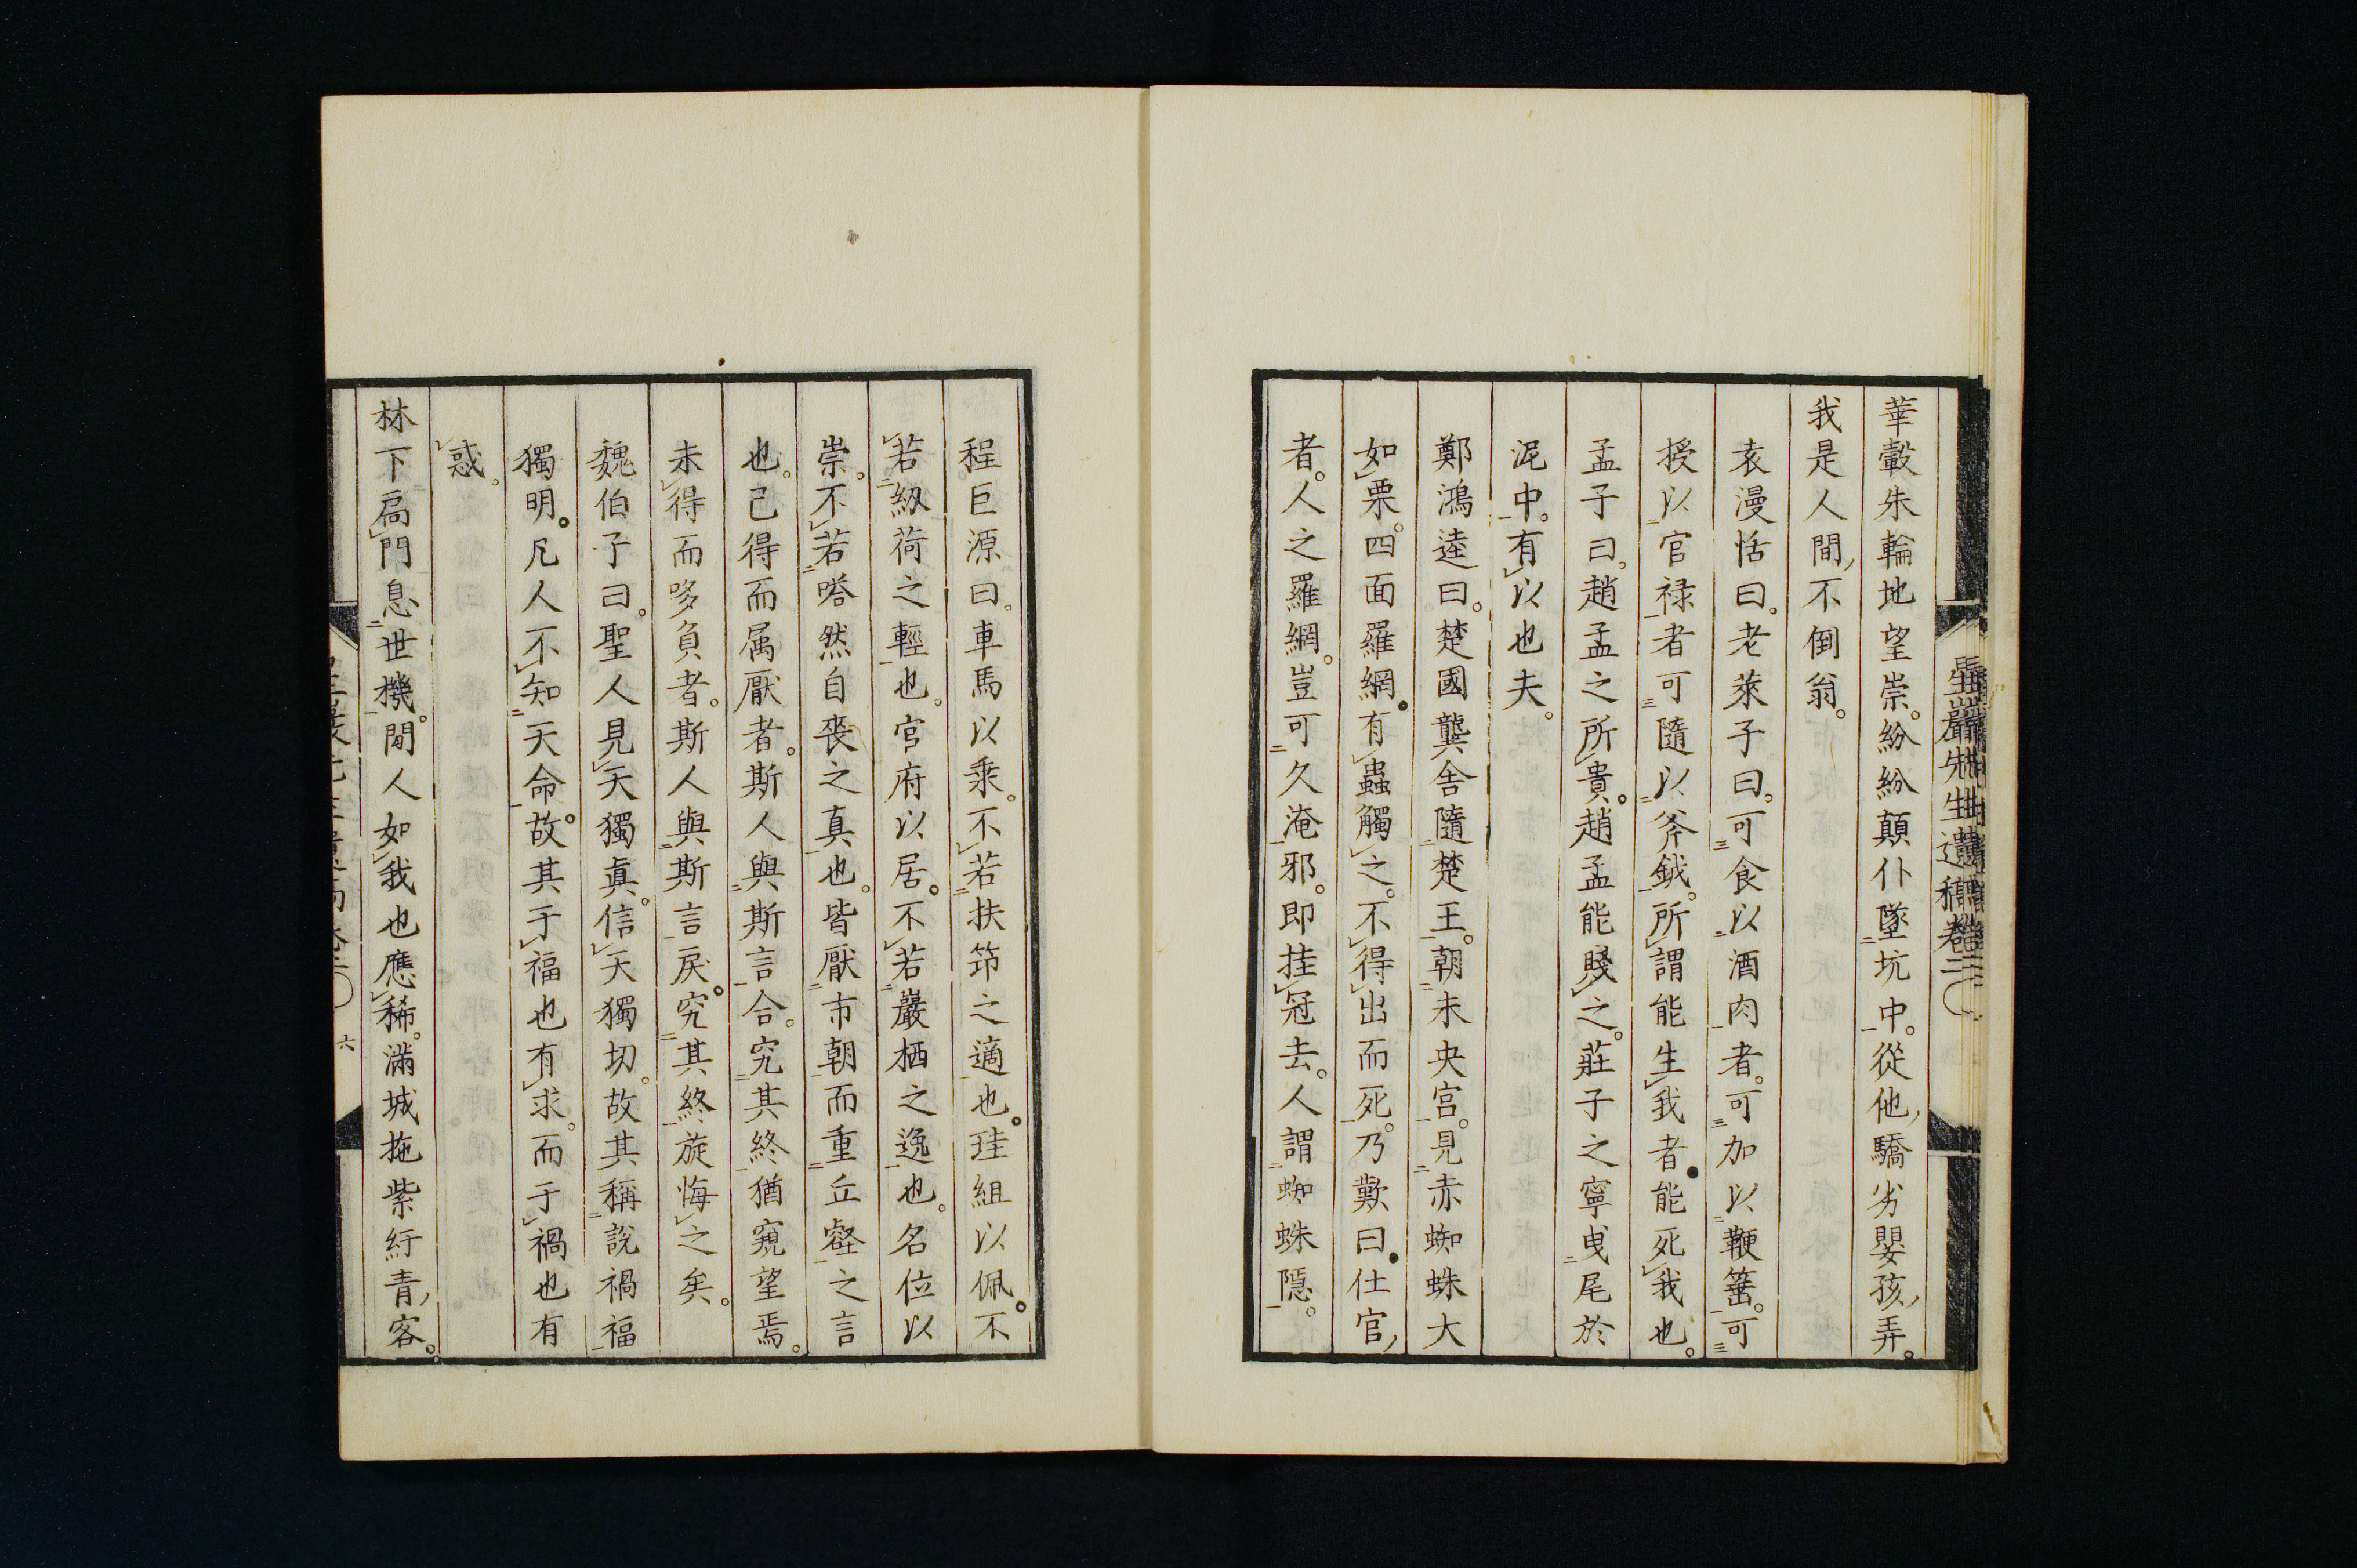 華轂朱輪地望崇。紛紛顛仆墜坑中。從他驕劣嬰孩弄。
我是人間不倒翁。
袁漫恬曰。老萊子曰。可食以酒肉者。可加以鞭箠。可
授以官祿者可隨以斧鉞。所謂能生我者。能死我也。
孟子曰。趙孟之所貴。趙孟能賤之。莊子之寧曳尾於
泥中。有以也夫。
鄭鴻逵曰。楚國龔舍隨楚王。朝未央宮。見赤蜘蛛大
如栗。四面羅網。有蟲觸之。不得出而死。乃歎曰。仕官
者。人之羅網。豈可久淹邪。即挂冠去。人謂蜘蛛隱。
程巨源曰。車馬以乘。不若扶筇之適也。珪組以佩。不
若紉荷之輕也。官府以居。不若巖栖之逸也。名位以
崇。不若嗒然自喪之真也。皆厭市朝而重丘壑之言
也。己得而属厭者。斯人與斯言合。究其終猶窺望焉。
未得而哆負者。斯人與斯言戾。究其終旋悔之矣。
魏伯子曰。聖人見天獨真。信天獨切。故其稱說禍福
獨明。凡人不知天命。故其于福也有求。而于禍也有
惑。
林下扃門息世機。閒人如我也應稀。滿城拖紫紆青客。
六